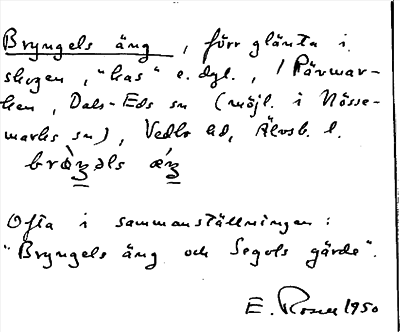 Bryngels äng, förr glänta i
skogen, "has" e.dyl., i Pärmar-
ken, Dals-Eds sn (möjl. i Nösse-
marks sn), Vedbo hd, Älvsb. l.
Ofta i sammanställningen:
"Bryngels äng och Segols gärde".
E. Rosell 1950